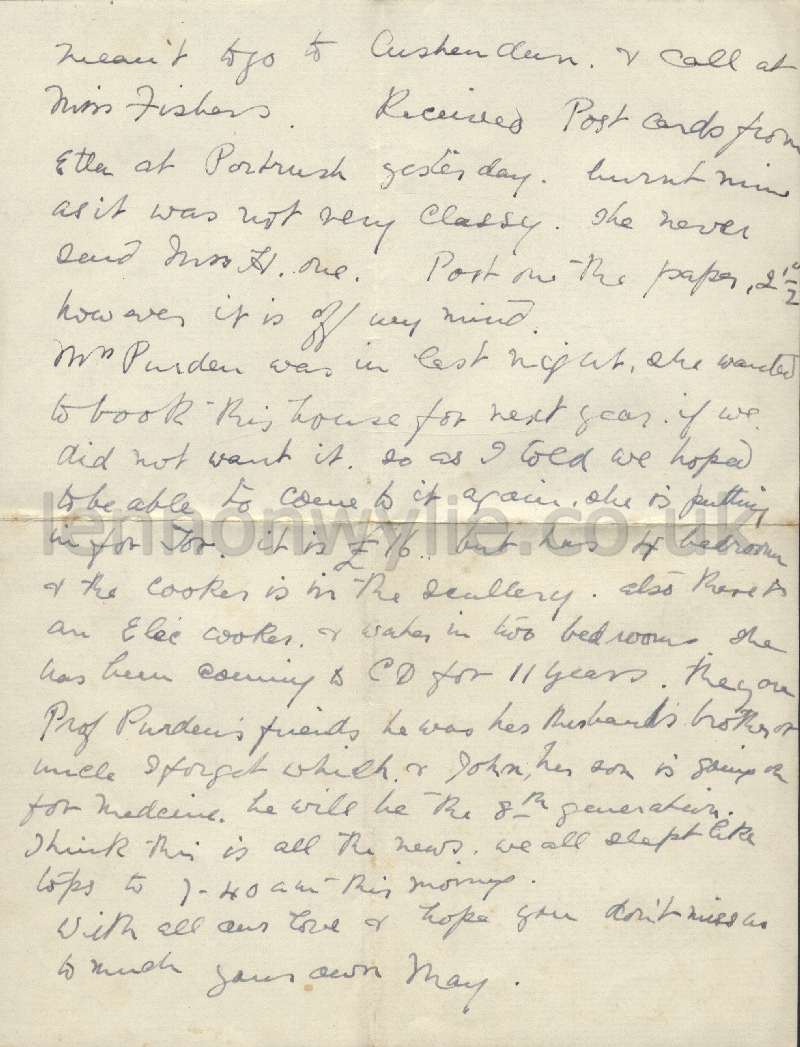 meant to go to Cushendun. & call at
Miss Fishers. Received Post cards from
Etta at Portrush yesterday. burnt mine
as it was not very classy. She never
send Miss H. one. Post on the paper, 2½
however it is off my mind.
Mrs Purden was in last night, she wanted
to book this house for next year. if we
did not want it. so as I told we hoped
to be able to come to it again. she is putting
in for Tor. it is £16. but has 4 bedroom
& the cooker is in the scullery. also there is
an Elec cooker. & water in two bedrooms she
has been coming to CD for 11 years. they are
Prof Purden's friends he was her Husband's brother or
uncle I forget which. & John, her son is going on
for Medicine. he will be the 8th generation.
I think this is all the news. we all slept like
tops to 7-40 am this morning.
With all our love & hope you don't miss us
to much your own May.
lennonwylie.co.uk